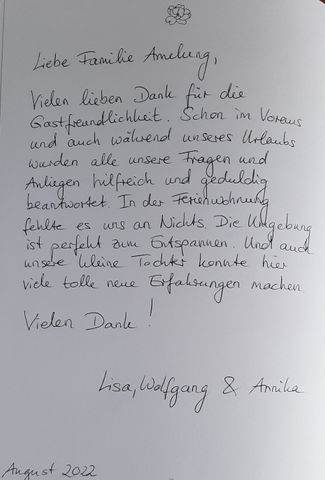 Liebe Familie Amelung,
Vielen lieben Dank für die
Gastfreundlichkeit. Schon im Voraus
und auch während unseres Urlaubs
wurden alle unsere Fragen und
Anliegen hilfreich und geduldig
beantwortet. In der Ferienwohnung
fehlte es uns an Nichts. Die Umgebung
ist perfekt zum Entspannen. Und auch
unsere kleine Tochter konnte hier
viele tolle neue Erfahrungen machen
Vielen Dank!
Lisa, Wolfgang & Annika
August 2022